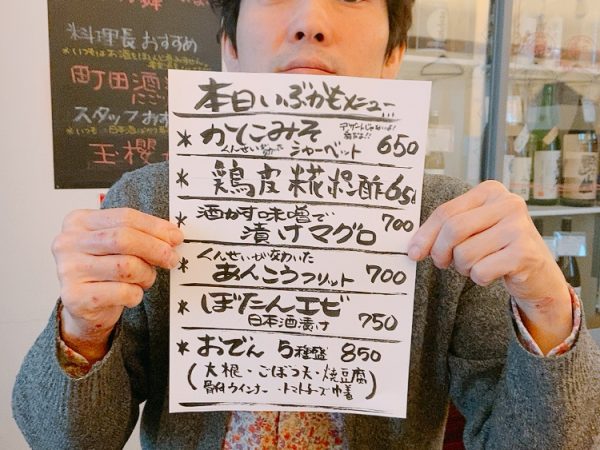 料理長おすすめ
町田酒
スタッフおす
玉櫻
本日いぶかもメニュー
* かにこみそ 650
くんせいかおった シャーベット
* 鶏皮糀ポン酢 650
* 酒かす味噌で 700
漬けマグロ
* くんせいが
あんこうフリット 700
* ぼたんエビ
日本酒漬け 750
* おでん 5種盛 850
(大根・ごぼう天・焼豆腐
骨付ウインナー・トマトチーズ巾着)